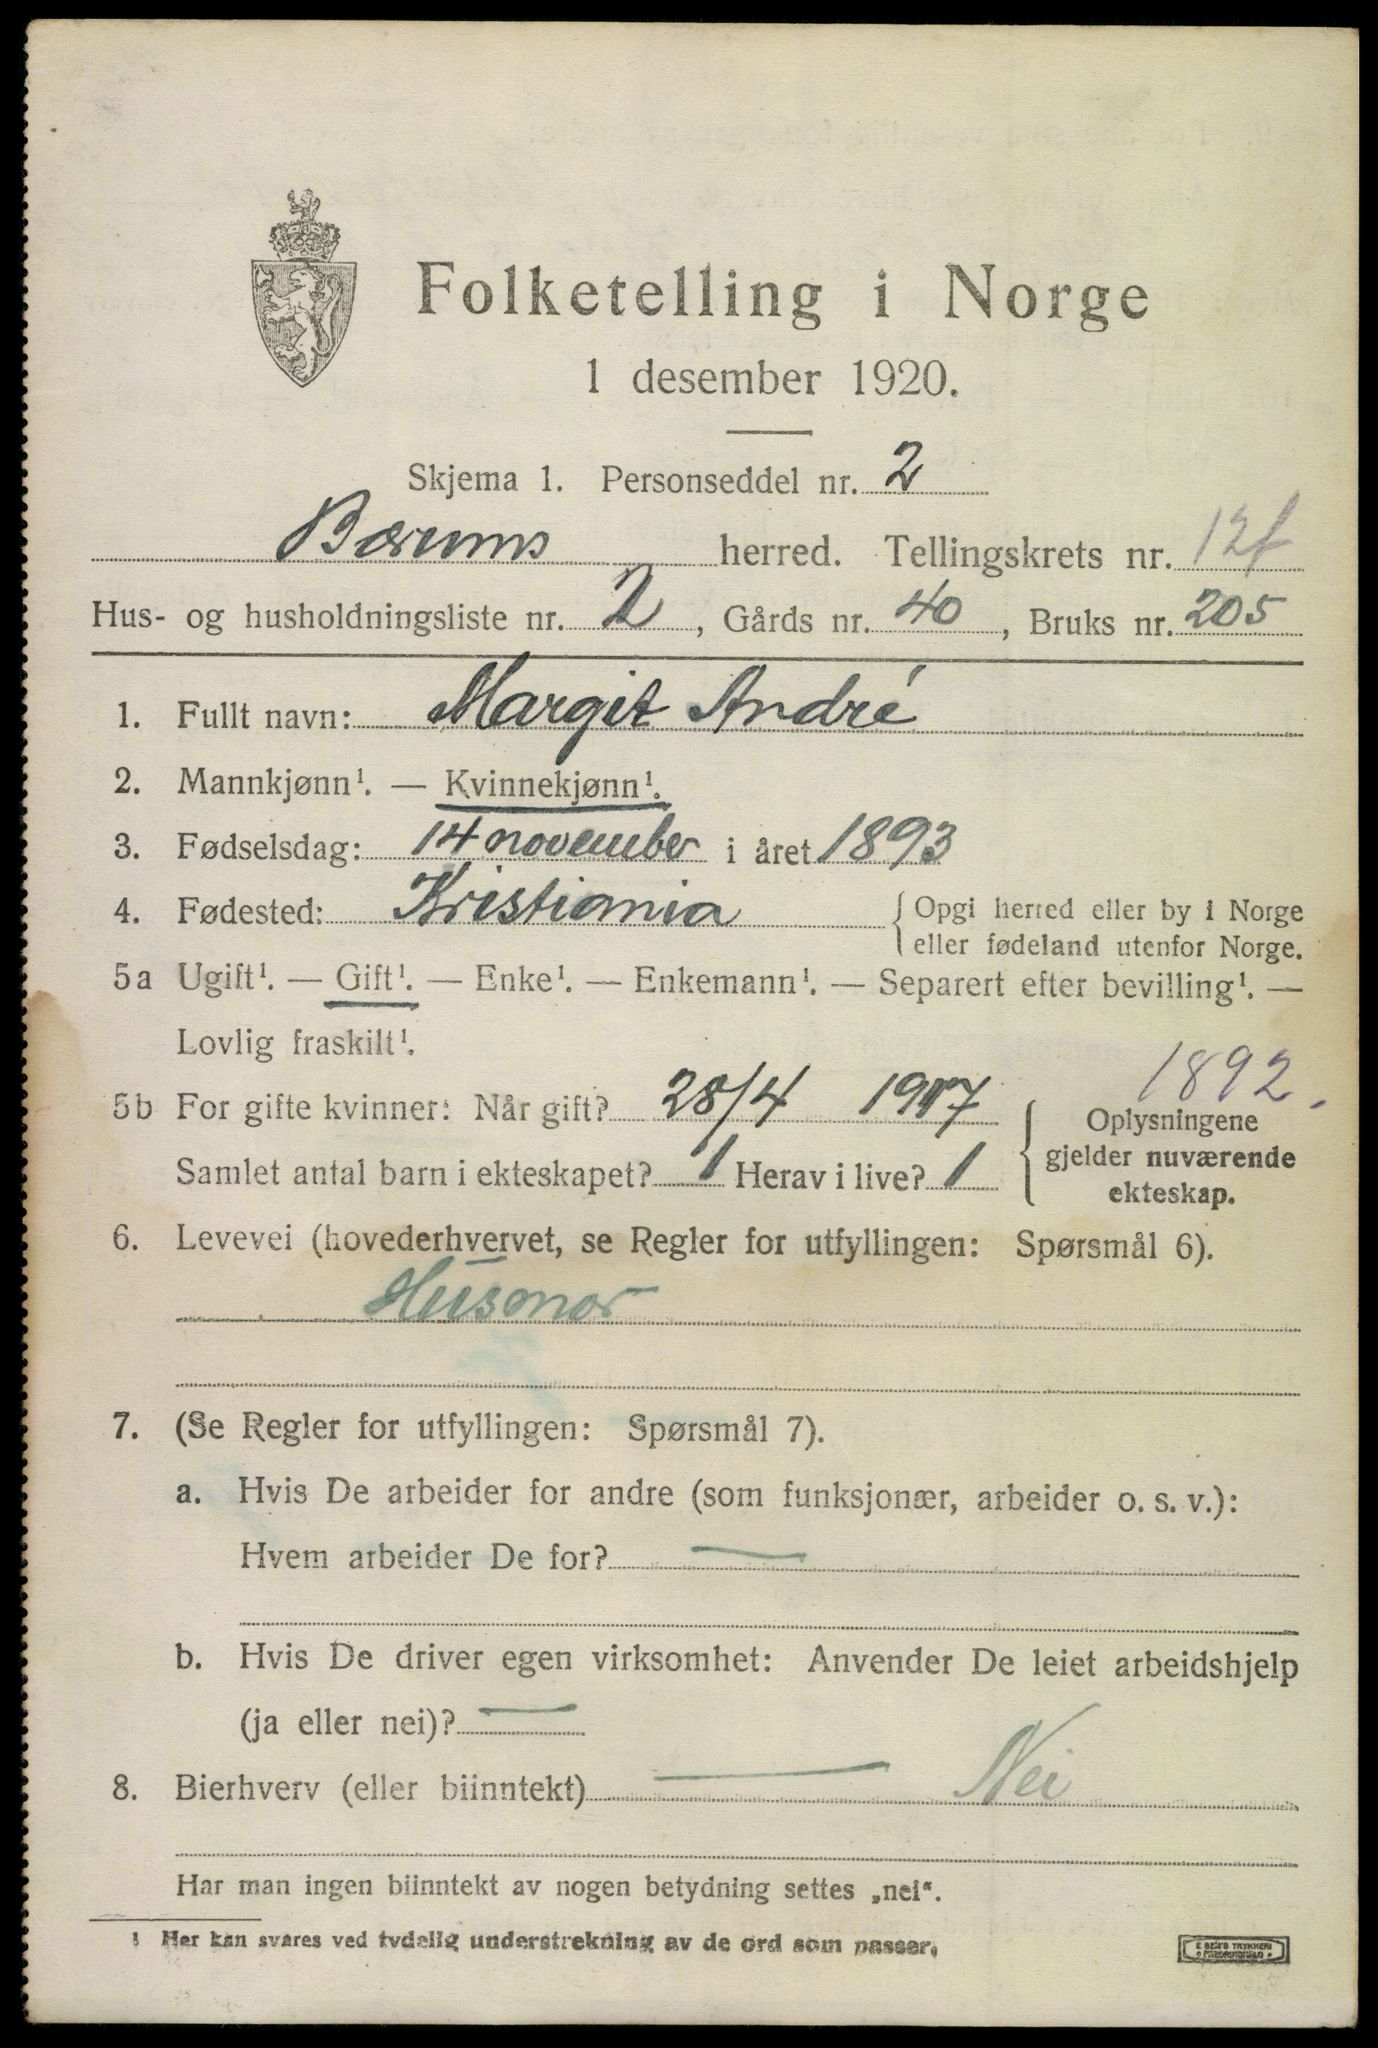 Folketelling i Norge
1 desember 1920.
Skjema 1. Personseddel nr. 2
Bærums herred. Tellingskrets nr. 12f
Hus- og husholdningsliste nr. 2, Gårds nr. 40, Bruks nr. 205
1. Fullt navn: Margit André
2. Mannkjønn¹. — Kvinnekjønn¹.
3. Fødselsdag: 14 november i året 1893
4. Fødested: Kristiania { Opgi herred eller by i Norge
eller fødeland utenfor Norge.
5a Ugift¹. — Gift¹. — Enke¹. — Enkemann¹. — Separert efter bevilling¹. —
Lovlig fraskilt¹.
1892.
5b For gifte kvinner: Når gift? 28/4 1917 { Oplysningene
gjelder nuværende
ekteskap.
Samlet antal barn i ekteskapet? 1 Herav i live? 1
6. Levevei (hovederhvervet, se Regler for utfyllingen: Spørsmål 6).
Husmor
7. (Se Regler for utfyllingen: Spørsmål 7).
a. Hvis De arbeider for andre (som funksjonær, arbeider o. s. v.):
Hvem arbeider De for? —
b. Hvis De driver egen virksomhet: Anvender De leiet arbeidshjelp
(ja eller nei)? —
8. Bierhverv (eller biinntekt) — Nei
Har man ingen biinntekt av nogen betydning settes „nei“.
¹ Her kan svares ved tydelig understrekning av de ord som passer.
E. SEM'S TRYKKERI
FREDRIKSHALD